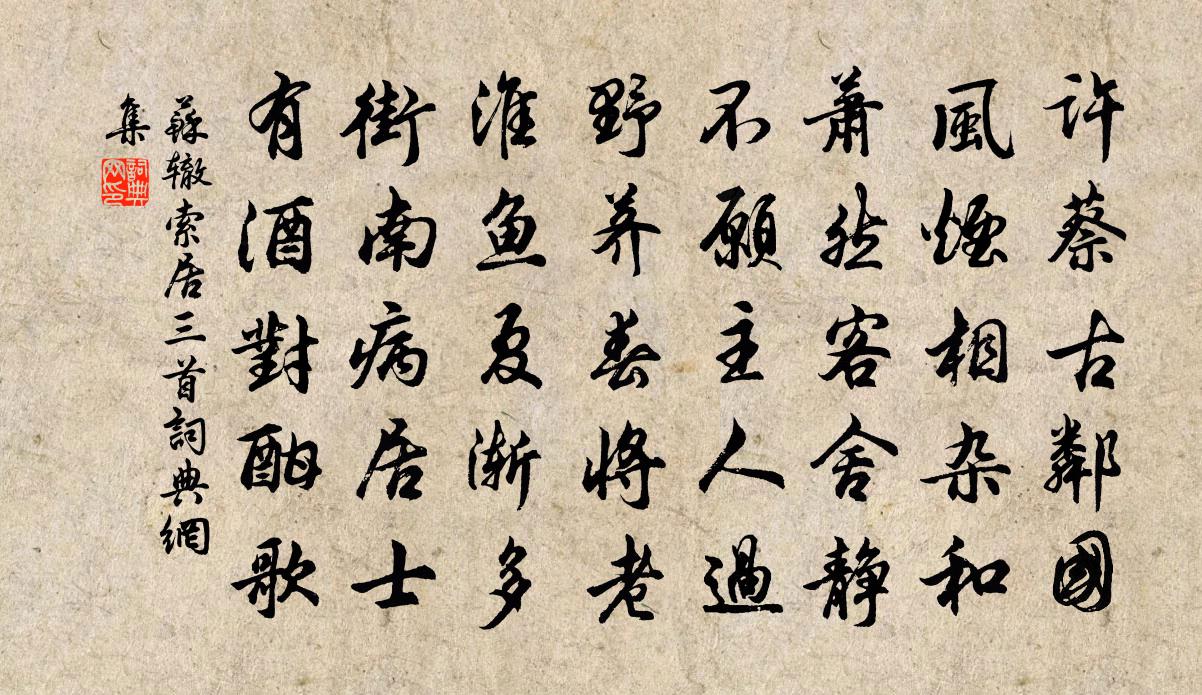 許蔡古鄰國
風煙相杂和
蕭然客舍静
不願主人過
野荞春將老
淮鱼夏渐多
街南病居士
有酒對酣歌
蘇辙索居三首詞典網
集
詞典网印